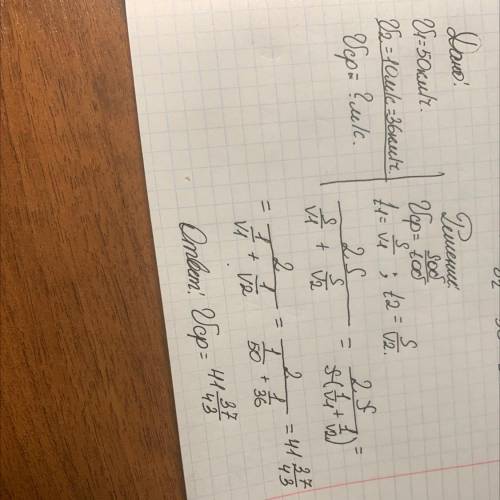 Дано:
V1=50км/ч.
V2=10м/с=36км/ч
Vср=?м/с.
Решение
Vср= Sоб/tоб
t1= S/V1 ; t2= S/V2.
2S/(S/V1 + S/V2) = 2S/(S(1/V1 + 1/V2)) =
= 2/(1/V1 + 1/V2) = 2/(1/50 + 1/36) = 41 37/43
Ответ: Vср = 41 37/43